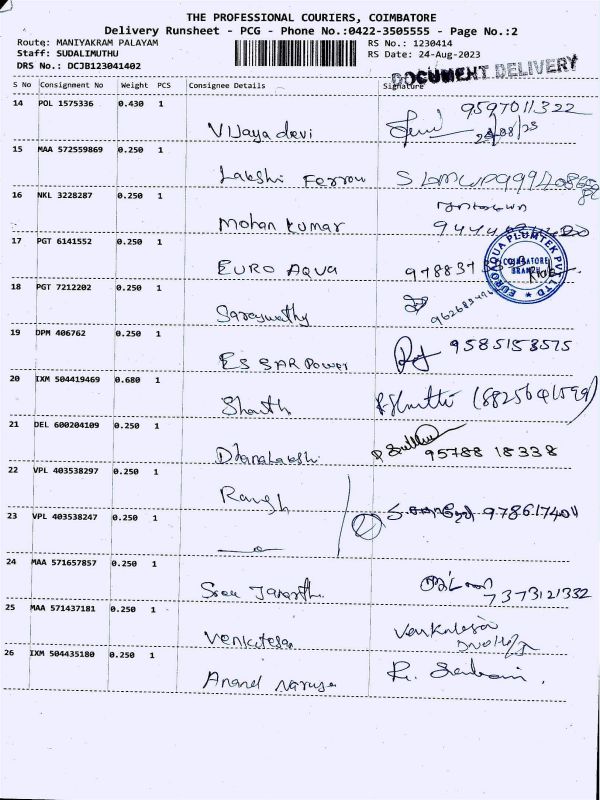 THE PROFESSIONAL COURIERS, COIMBATORE
Delivery Runsheet - PCG - Phone No.:0422-3505555 - Page No.:2
Route: MANIYAKRAM PALAYAM RS No.: 1230414
Staff: SUDALIMUTHU RS Date: 24-Aug-2023
DRS No.: DCJB123041402
DOCUMENT DELIVERY
S No Consignment No Weight PCS Consignee Details Signature
14 POL 1575336 0.430 1
Vijaya devi 9597011322
24/08/23
15 MAA 572559869 0.250 1
Lakshi
16 NKL 3228287 0.250 1
Mohan kumar
17 PGT 6141552 0.250 1
EURO AQUA 978837
EUROAQUA PLUMTEK PVT LTD
COIMBATORE
BRANCH
18 PGT 7212202 0.250 1
Saraswathy
19 DPM 406762 0.250 1
ESSAR Power 9585158575
20 IXM 504419469 0.680 1
21 DEL 600204109 0.250 1
Dhanalakshi 95788 18338
22 VPL 403538297 0.250 1
23 VPL 403538247 0.250 1
24 MAA 571657857 0.250 1
Sree 7373121332
25 MAA 571437181 0.250 1
Venkatesa Venkatesan
26 IXM 504435180 0.250 1
Anand